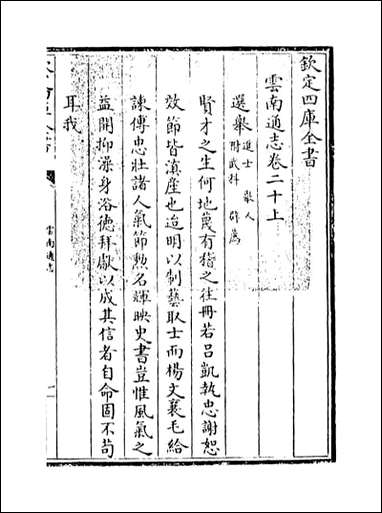 欽定四庫全書
雲南通志卷二十上
選舉 進士 舉人 附武科 辟薦
賢才之生何地蔑有稽之往冊若呂凱執忠謝恕
效節皆滇産也迨明以制藝取士而楊文襄毛給
諫傅忠壯諸人氣節勲名輝映史書豈惟風氣之
益開抑澡身浴德拜獻以成其信者自命固不苟
耳我
雲南通志